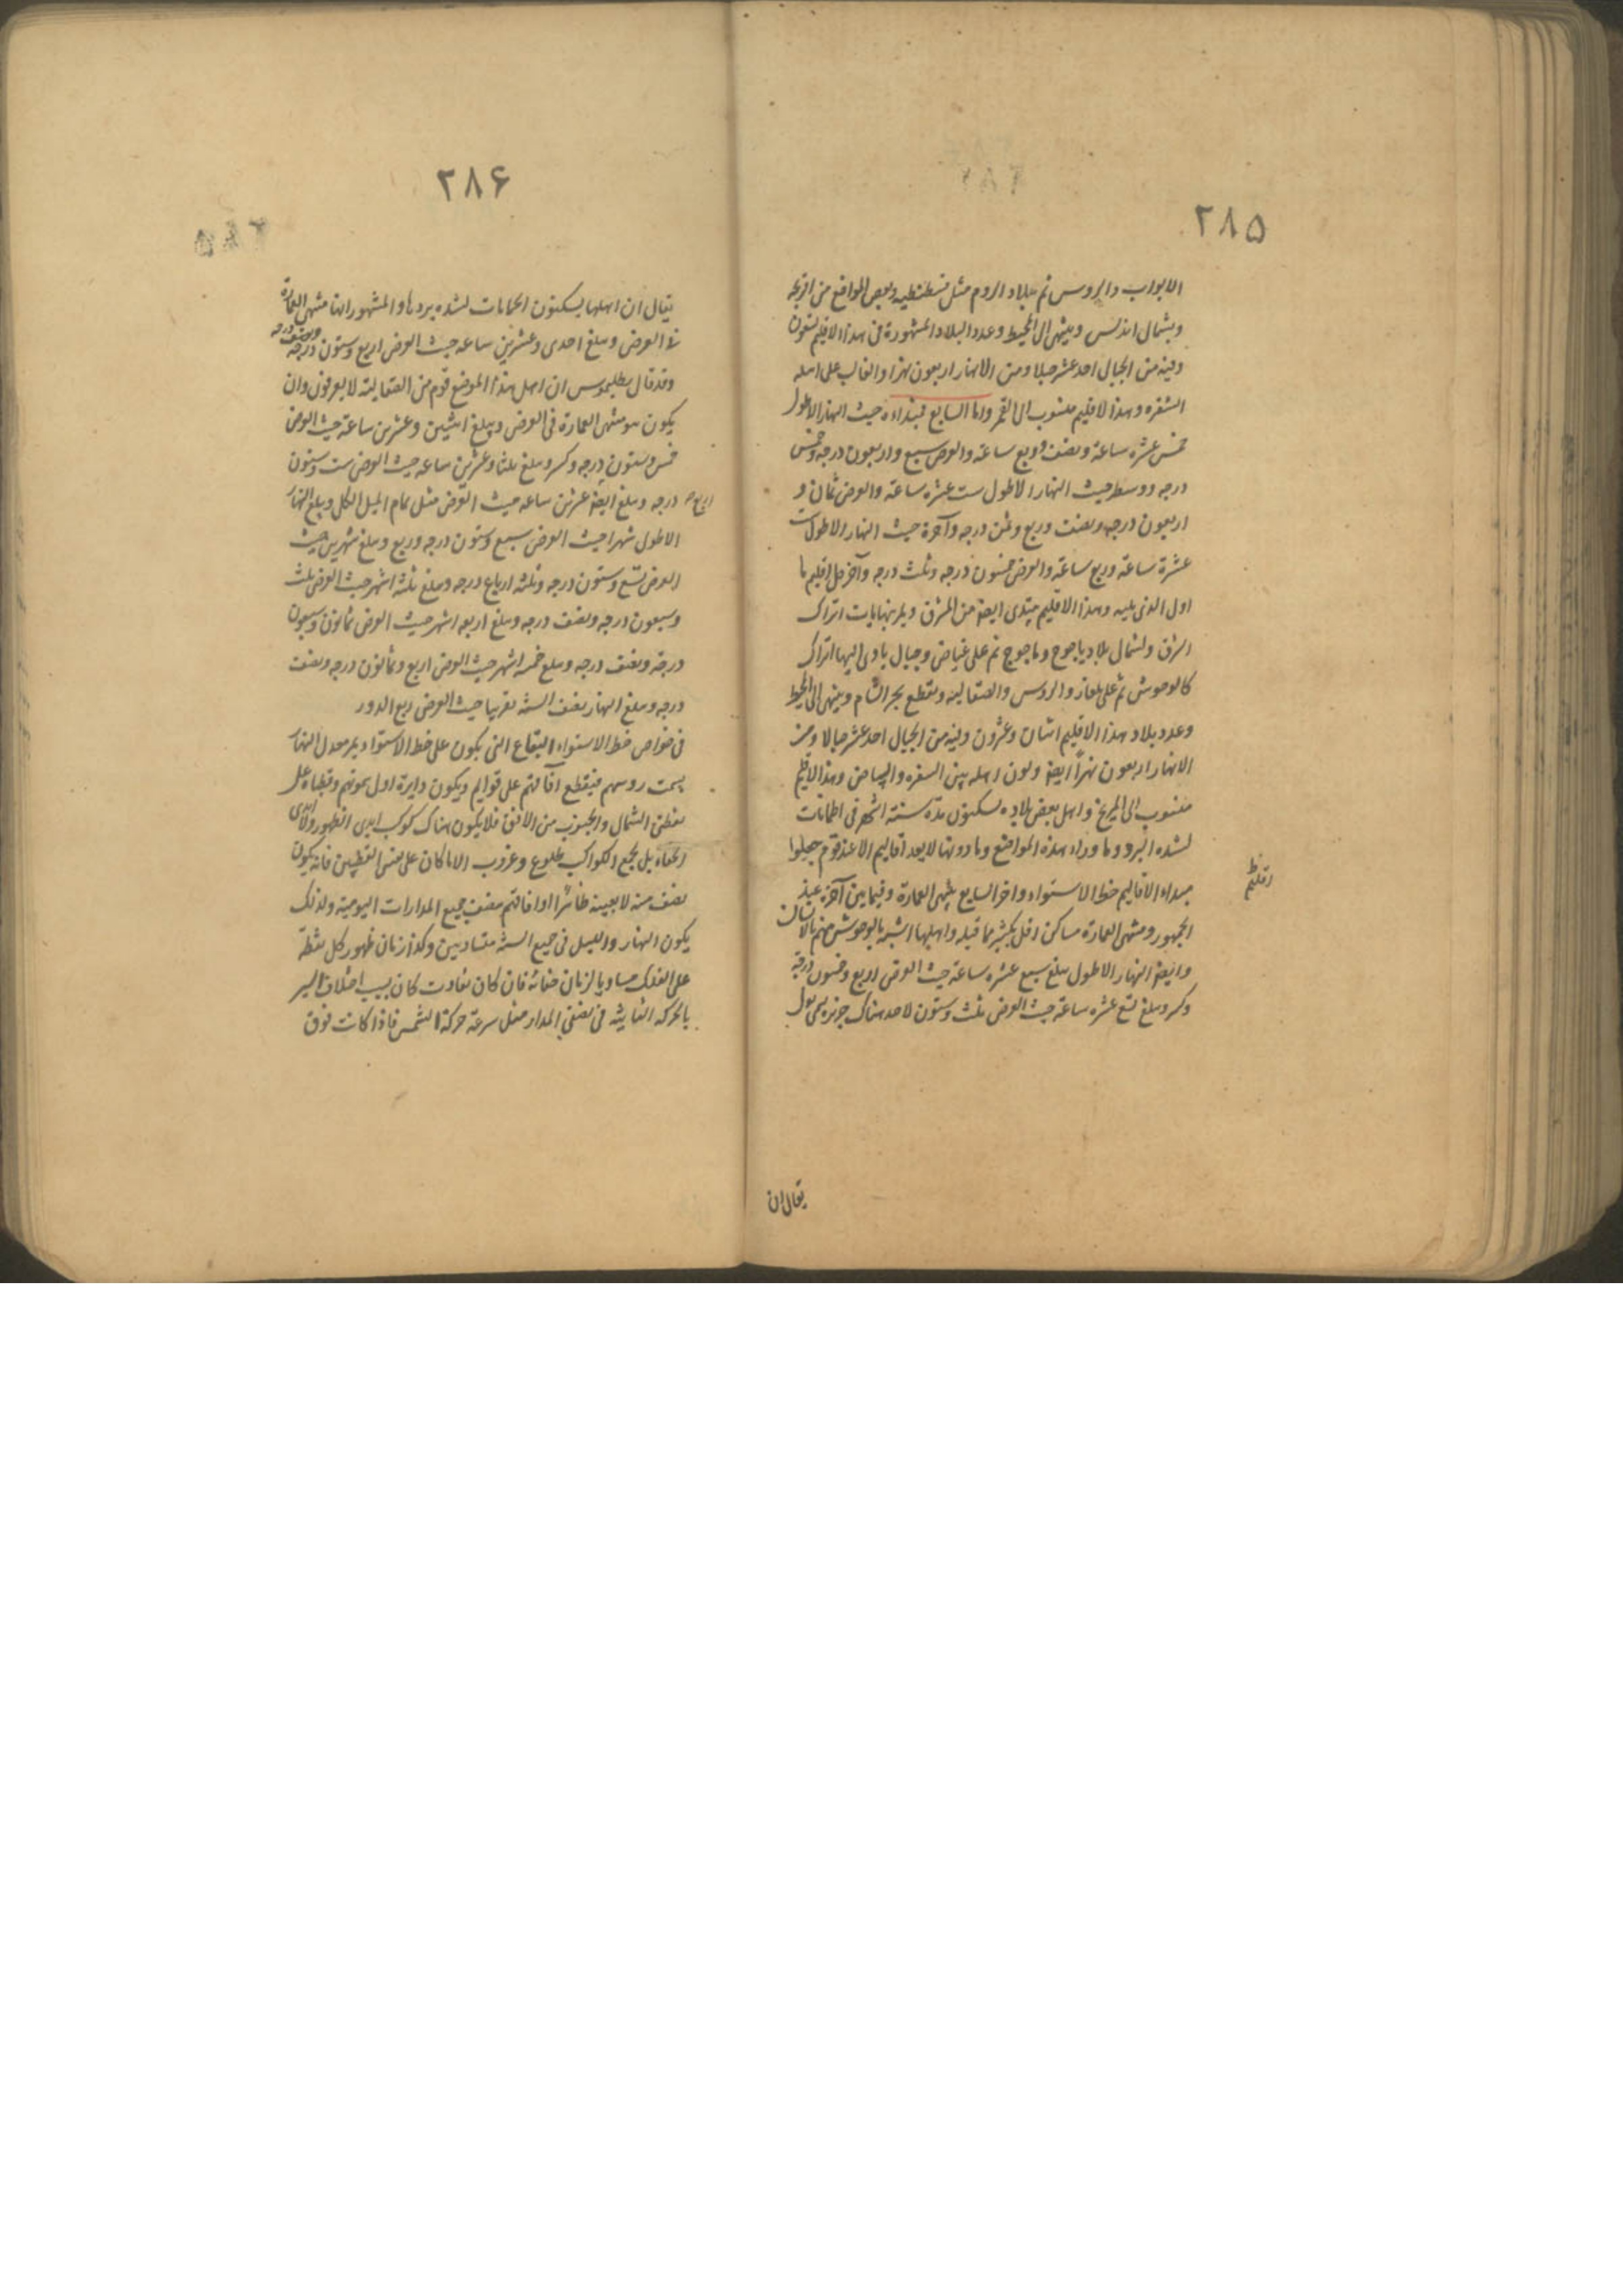 ٢٨٥
الابواب والروس ثم ببلاد الروم مثل قسطنطنيه وبعض المواقع من افرنجه
وبشمال اندلس وينتهى الى المحيط وعدد البلاد المشهورة فى هذا الاقليم تسعون
وفيه من الجبال احد عشر جبلا ومن الانهار اربعون نهرا والغالب على اهله
الشقره وهذا الاقليم منسوب الى القمر واما السابع فمبداءه حيث النهار الاطول
خمس عشرة ساعة ونصف وربع ساعة والعرض سبع واربعون درجه وخمس
درجه ووسطه حيث النهار الاطول ست عشرة ساعة والعرض ثمان و
اربعون درجه ونصف وربع وثمن درجه وآخره حيث النهار الاطول ست
عشرة ساعة وربع ساعة والعرض خمسون درجه وثلث درجه وآخر كل اقليم ما
اول الذى يليه وهذا الاقليم يبتدى ايضا من المشرق ويمر بنهايات اتراك
الشرق ولشمال بلاد ياجوج وماجوج ثم على غياض وجبال ياوى اليها اتراك
كالوحوش ثم على بلغار والروس والصقالبه ويقطع بحر الشام وينتهى الى المحيط
وعدد بلاد هذا الاقليم اثنان وعشرون وفيه من الجبال احد عشر جبالا ومن
الانهار اربعون نهراً ايضا ولون اهله بين الشقره والبياض وهذا الاقليم
منسوب الى المريخ واهل بعض بلاده يسكنون مدة ستة اشهر فى الحمامات
لشده البرد وما وراء هذه المواضع وما دونها لا يعد اقاليم الا عند قوم جعلوا
مبداء الاقاليم خط الاستواء واخر السابع منتهى العمارة وفيما بين آخره عند
الجمهور ومنتهى العمارة مساكن اقل بكثير مما قبله واهلها اشبه بالوحوش منهم بالانسان
وايضا النهار الاطول يبلغ سبع عشرة ساعة حيث العرض اربع وخمسون درجة
وكسر ويبلغ تسع عشره ساعة حيث العرض ثلث وستون لاحد هناك جزيره يسمى تولى
يقال ان
٢٨۶
يقال ان اهلها يسكنون الحمامات لشده بردها والمشهور انها منتهى العمارة
فى العرض ويبلغ احدى وعشرين ساعه حيث العرض اربع وستون درجه ونصف درجه
وقد قال بطليموس ان اهل هذا الموضع قوم من الصقالبة لا يعرفون وان
يكون هو منتهى العمارة فى العرض ويبلغ اثنين وعشرين ساعة حيث العرض
خمس وستون درجه وكسر ويبلغ ثلثا وعشرين ساعه حيث العرض ست وستون
درجه ويبلغ اربعا وعشرين ساعه حيث العرض مثل تمام الميل الكلى ويبلغ النهار
الاطول شهرا حيث العرض سبع وستون درجه وربع ويبلغ شهرين حيث
العرض تسع وستون درجه وثلثه ارباع درجه ويبلغ ثلثة اشهر حيث العرض ثلث
وسبعون درجه ونصف درجه ويبلغ اربعه اشهر حيث العرض ثمانون وسبعون
درجة ونصف درجه ويبلغ خمسه اشهر حيث العرض اربع وثمانون درجه ونصف
درجه ويبلغ النهار نصف السنه تقريبا حيث العرض ربع الدور
فى خواص خط الاستواء البقاع التى يكون على خط الاستواء يمر معدل النهار
بسمت روسهم فيقطع آفاقهم على قوايم ويكون دايرة اول سموتهم وقطباه على
نقطتى الشمال والجنوب من الافق فلا يكون هناك كوكب ابدى الظهور ولا ابدى
الخفاء بل لجميع الكواكب طلوع وغروب الا ما كان على نفس القطبين فانه يكون
نصف منه لا بعينه ظاهراً ابدا وافاقهم منصف جميع المدارات اليوميه ولذلك
يكون النهار والليل فى جميع السنه متساويين وكذا زمان ظهور كل نقطة
على الفلك مساويا لزمان خفائه فان كان تفاوت كان بسبب اختلاف السير
بالحركه الثانيه فى نصفى المدار مثل سرعة حركة الشمس فاذا كانت فوق